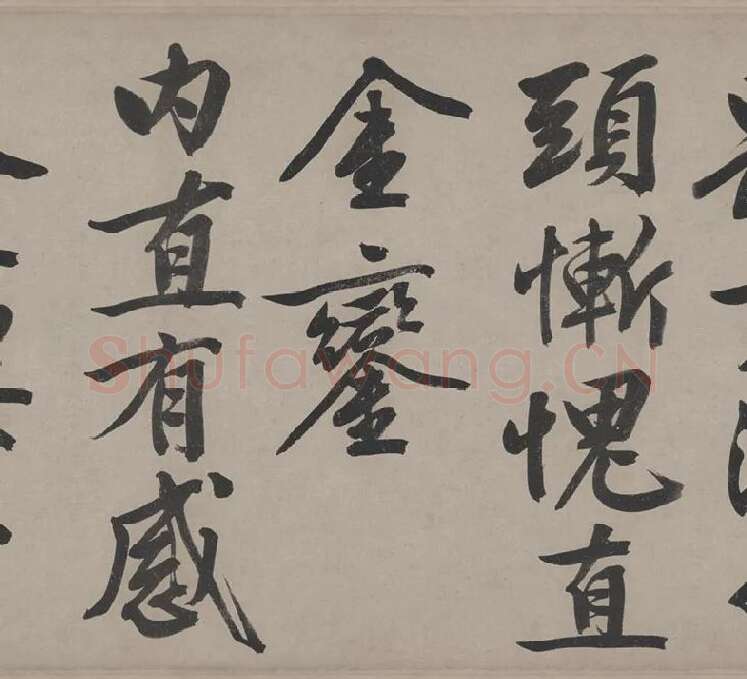 頭慚愧直
金鑾
内直有感
Shufawang.CN